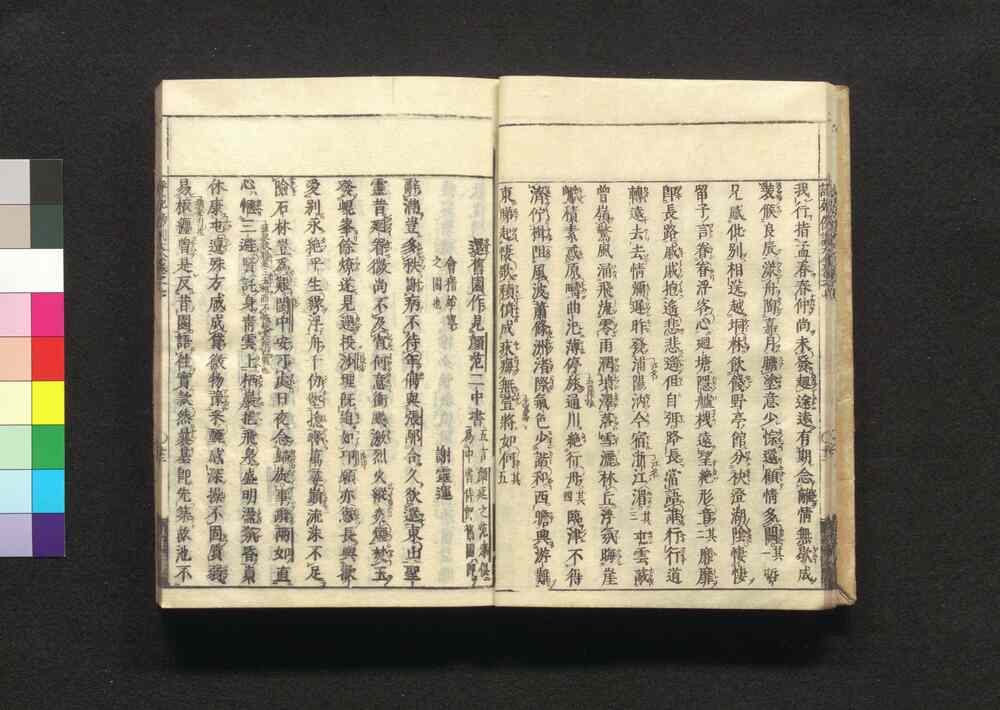 我行指孟春春仲尚未發趣途遠有期念離情無歇成
裝候良辰漾舟陶嘉月矚塗意少悰還顧情多闕其一哲
兄感仳別相送越坰林飲餞野亭館分袂澄湖陰悽悽
留子言眷眷浮客心廻塘隱艫栧遠望絶形音其二靡靡
即長路戚戚抱遙悲悲遙但自弭路長當語誰行行道
轉遠去去情彌遲昨發浦陽汭今宿浙江湄其三屯雲蔽
曾嶺驚風涌飛流零雨潤墳澤落雪灑林丘浮氛晦崖
巘積素惑原疇曲汜薄停旅通川絶行舟其四臨津不得
濟佇楫阻風波蕭條洲渚際氣色少諧和西瞻興游歎
東睇起悽歌積憤成疢痗無萱將如何其五
還舊園作見顏范二中書 五言顏延之范泰俱爲中書侍郎舊園即
會稽始寧之園也
謝靈運
辭滿豈多秩謝病不待年偶與張邴合久欲還東山聖
靈昔廻眷微尚不及宣何意衝飈激烈火縱炎煙焚玉
發崐峯餘燎遂見遷投沙理旣迫如卭願亦愆長與懽
愛別永絶平生緣浮舟千仞壑揔轡萬尋巓流沫不足
險石林豈爲艱閩中安可處日夜念歸旋事躓兩如直
心愜三避賢託身青雲上栖巖挹飛泉盛明盪氛昏貞
休康屯邅殊方咸成貸微物豫采甄感深操不固質弱
易板纏曾是反昔園語往實款然曩基即先築故池不